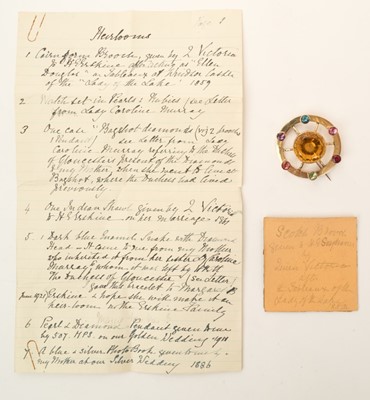 Heirlooms
1 Cairngorm Brooch, given by Q Victoria
to H Erskine after acting as "Ellen
Douglas" in Tableaux at Windsor Castle
of the "Lady of the Lake" 1859
2 Watch set in Pearls & Rubies (see Letter
from Lady Caroline Murray
3 One case "Bagshot diamonds (viz) 2 brooches
1 Pendant) see letter from Lady
Caroline Murray referring to the Duchess
of Gloucester's present of the Diamonds
to my Mother, when she went to live at
Bagshot, where the Duchess had lived
previously
4 One Indian Shawl given by Q Victoria
to H Erskine on her marriage
5 1 Dark blue Enamel Snake with Diamond
Head - It came to me from my Mother
who inherited it from her sister
Murray to whom it was left by H.R.H
The Duchess of Gloucester (see Letter)
gave this bracelet to
Erskine & hope she will make it an
heirloom in the Erskine family
6 Pearl & Diamond Pendant given to me
by on our Golden Wedding
7 A blue & silver Photo Book given to me by
my Mother at our Silver Wedding 1886
Scotch Brooch
given
by
Queen Victoria
after
Lady of the Lake